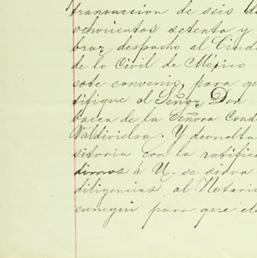 transaccion de seis de
ochocientos setenta y
brar despacho al Ciudad
de lo Civil de México
este convenio para que
tifique al Señor Don
cacea de la Señora Cond
Valdivielso. Y devuelta
sitoria con la ratifica
dimos á U. se sirva
diligencias al Notario
cunegui para que el